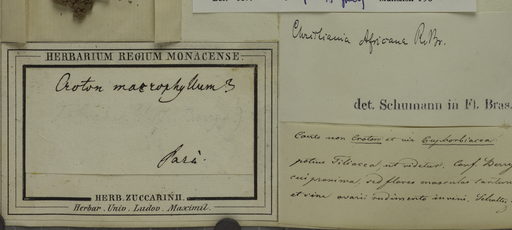 HERBARIUM REGIUM MONACENSE.
Croton macrophyllum?
Pará.
HERB. ZUCCARINII.
Herbar. Univ. Ludov. Maximil.
Christiania Africana R. Br.
det. Schumann in Fl. Bras.
Certe non Croton et vix Euphorbiacea
potius Tiliacea, ut videtur. Conf. Berry
cui proxima, sed flores masculus
et sine ovarii rudimento inveni.